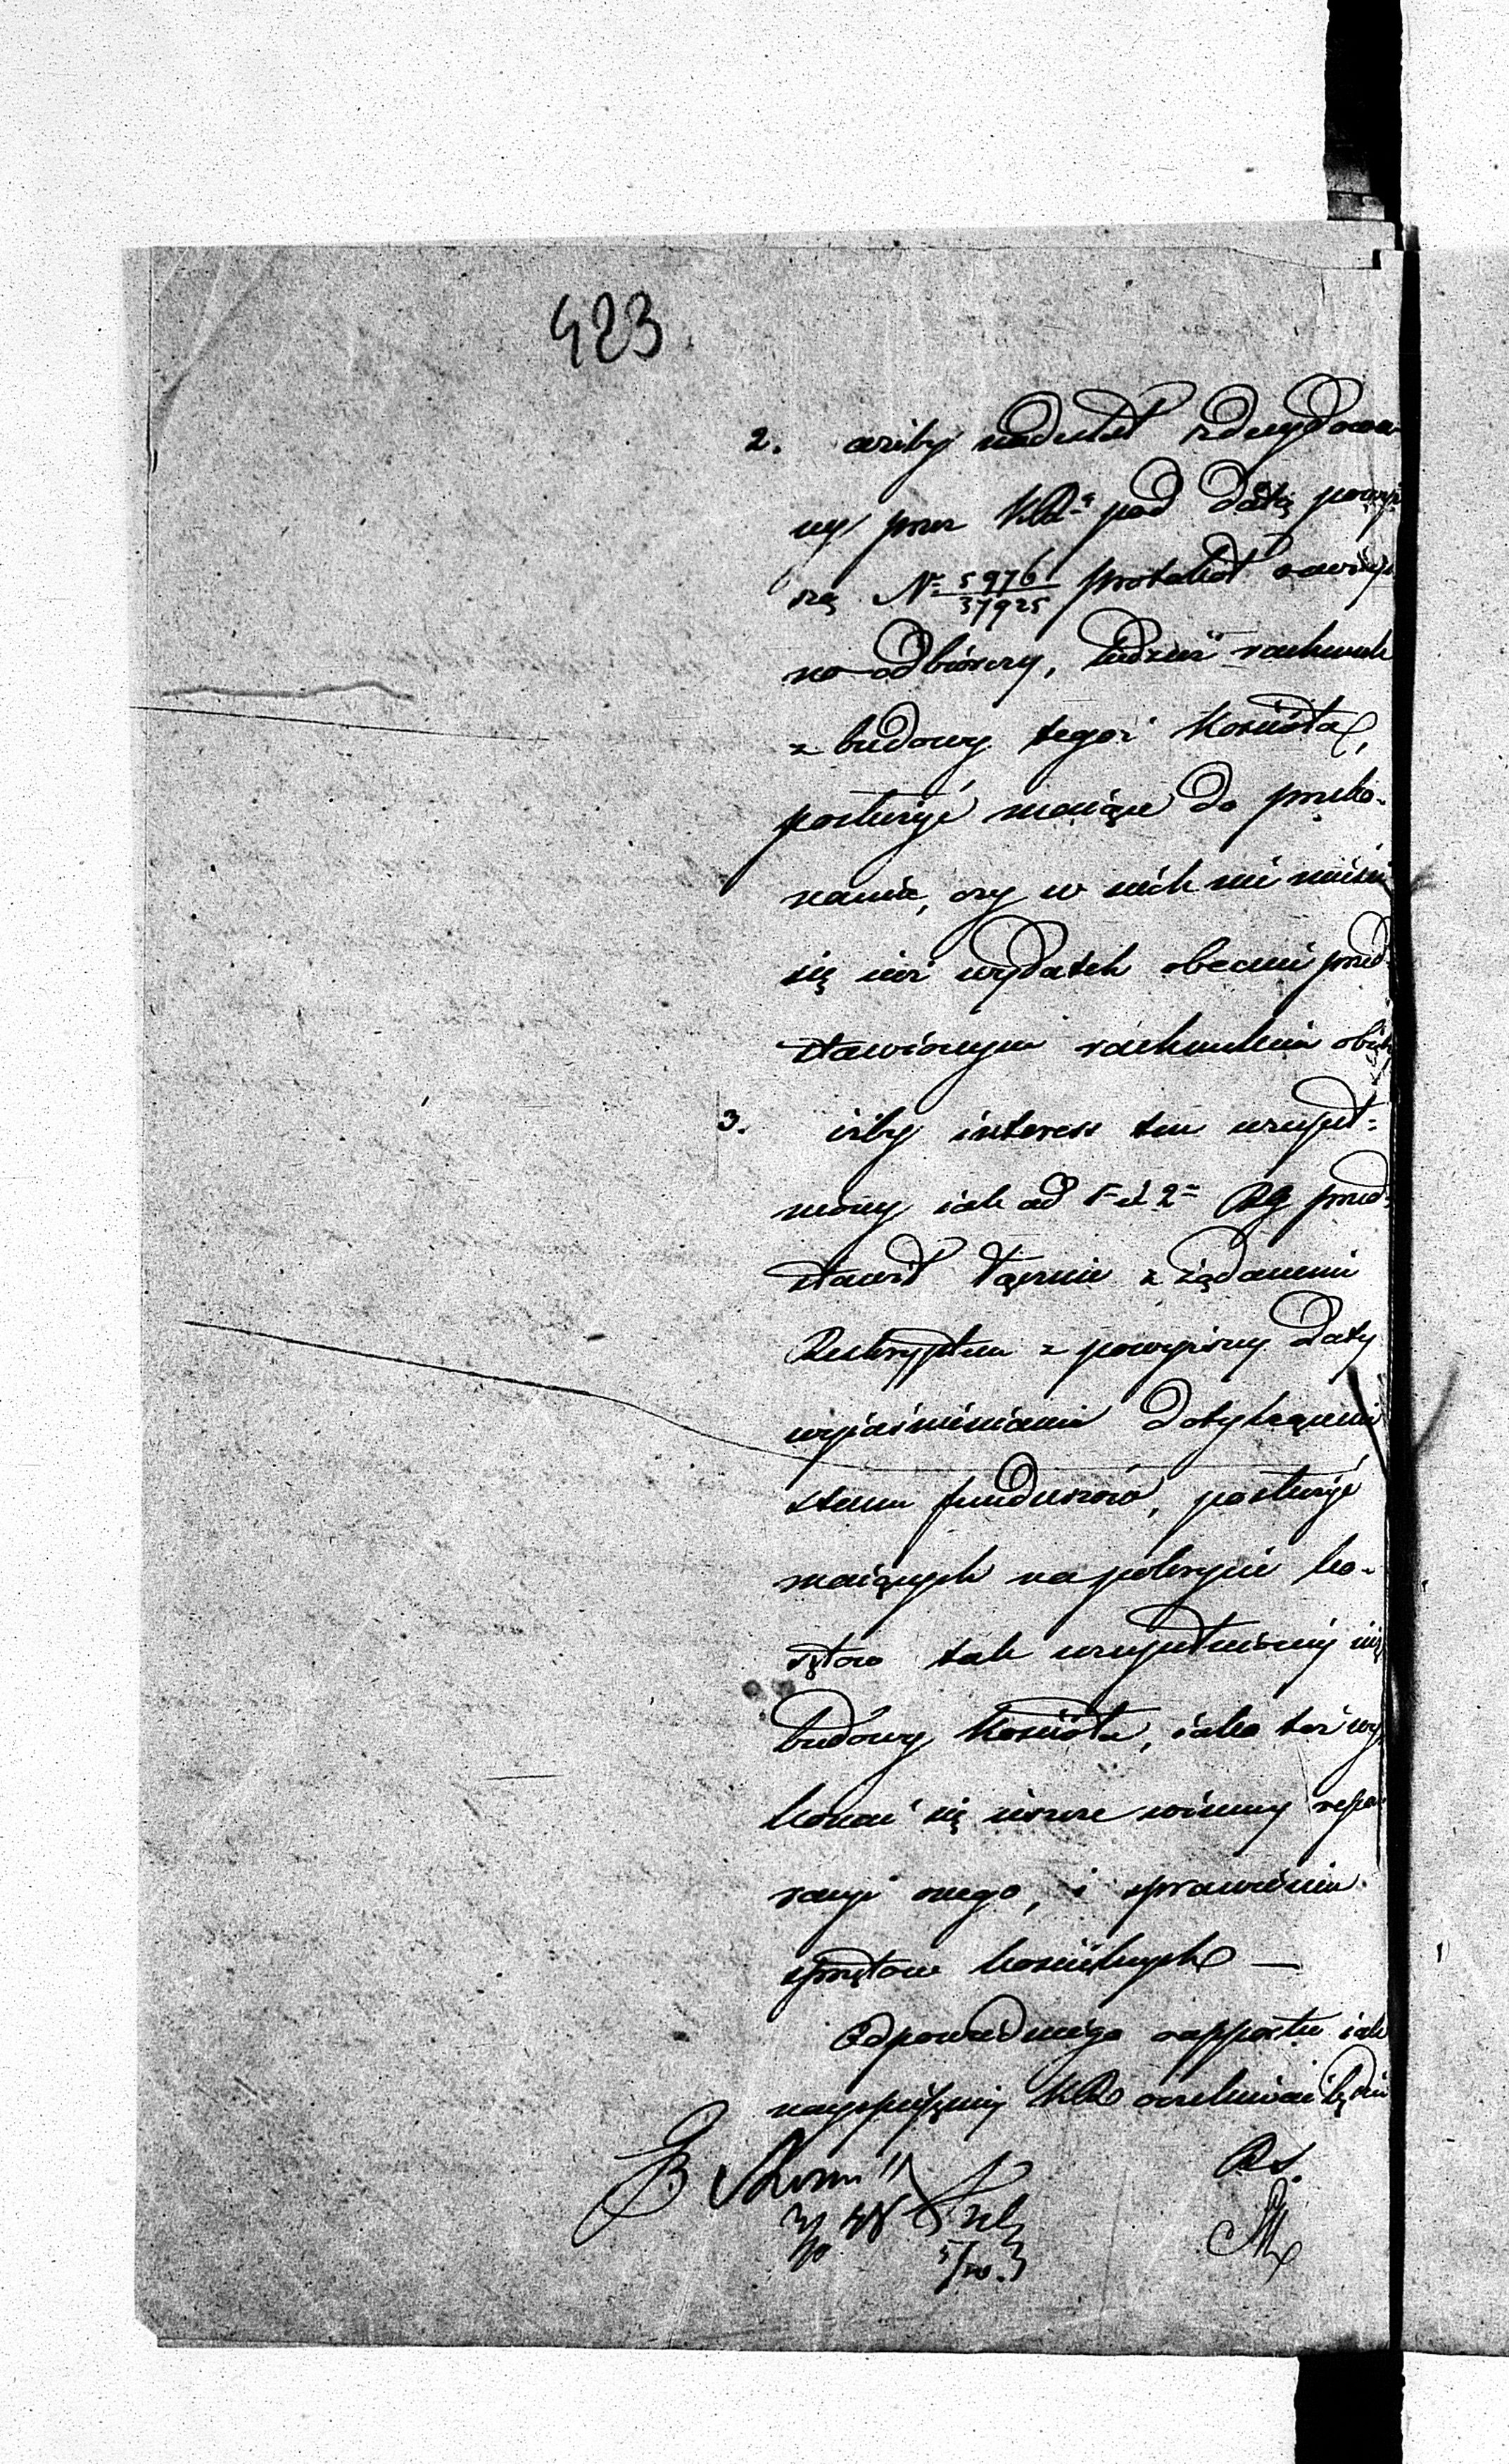 423
2. ażeby nadesłał zdecydowa
ny przez KRą pod datą powyż
szą Nr 5976/37925 protokół zawię
no-odbiorczy, tudzież rachunek
z budowy tegoż Kościoła,
posłużyć maiące do przeko-
nania, czy w nich nie mieści
się iuż wydatek obecnie przed-
stawionym rachunkiem obięty
3. iżby interess ten uzupeł-
niony iak ad 1° i 2° RG przed-
stawił łącznie z żądanemi
Reskryptem z powyższey daty
wyiaśnieniami dotyczącemi
stanu funduszów, posłużyć
maiących na pokrycie ko-
sztów tak uzupełnioney iuż
budowy Kościoła, iako też wy
konać się ieszcze winney repa
racyi onego, i sprawienia
sprzętów kościelnych —
Odpowiedniego rapportu iak
nayspieszniey KR oczekiwać będzie